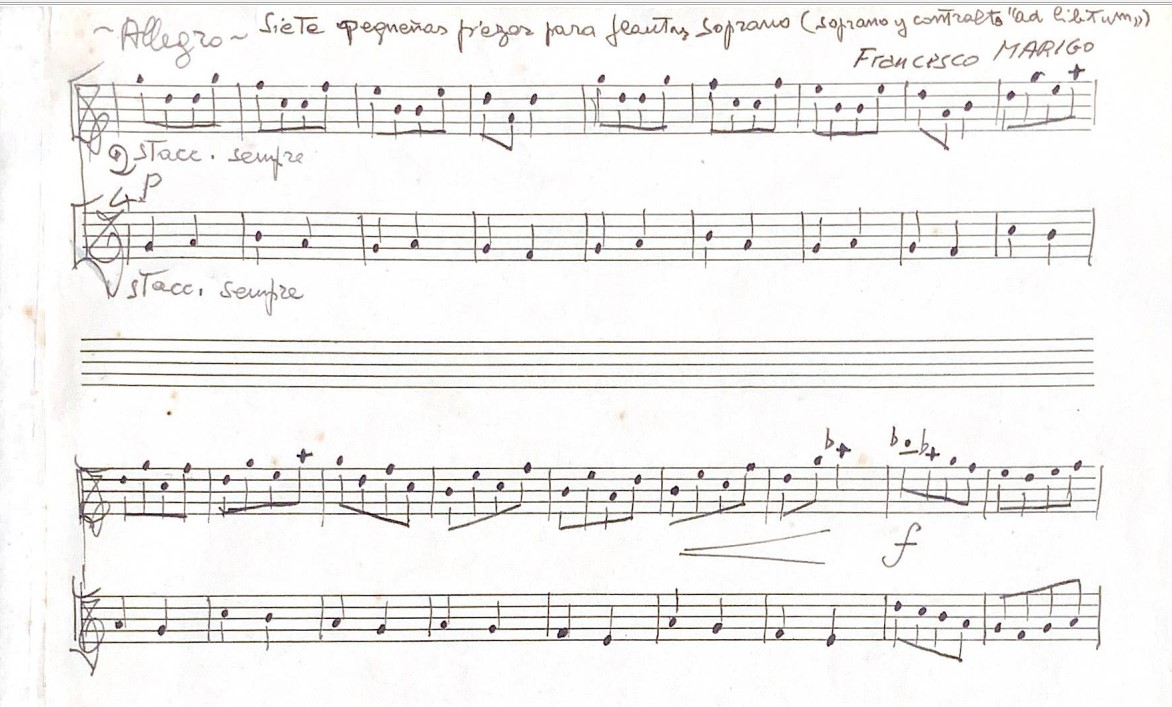 ~Allegro~ Siete pequeñas piezas para flautas soprano (soprano y contralto "ad libitum")
Francesco MARIGO
2 stacc. sempre
4 P
stacc. sempre
f